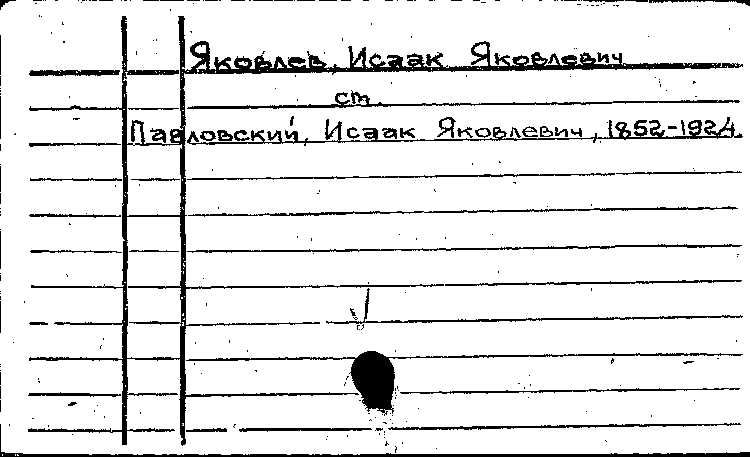 Яковлев, Исаак Яковлевич
ст.
Павловский, Исаак Яковлевич, 1852-1924.